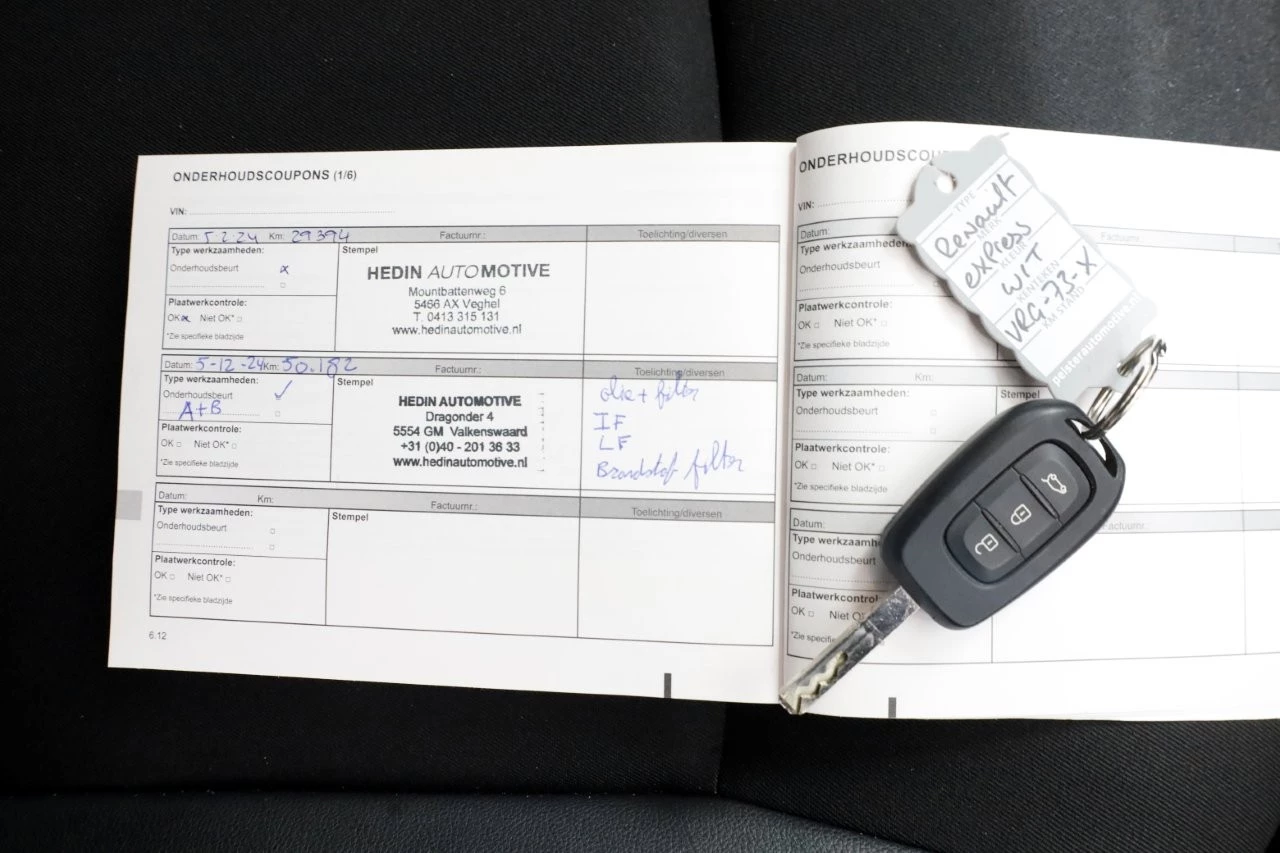 ONDERHOUDSCOUPONS (1/6)
VIN:
Datum: 5 2 24 Km: 29394 Factuurnr.: Toelichting/diversen
Type werkzaamheden: Stempel
Onderhoudsbeurt x
Plaatwerkcontrole:
OK x Niet OK*
*Zie specifieke bladzijde
HEDIN AUTOMOTIVE
Mountbattenweg 6
5466 AX Veghel
T. 0413 315 131
www.hedinautomotive.nl
Datum: 5-12-24 Km: 50.182 Factuurnr.: Toelichting/diversen
Type werkzaamheden: Stempel
Onderhoudsbeurt ✓
A+B
Plaatwerkcontrole:
OK Niet OK*
*Zie specifieke bladzijde
HEDIN AUTOMOTIVE
Dragonder 4
5554 GM Valkenswaard
+31 (0)40 - 201 36 33
www.hedinautomotive.nl
olie + filter
IF
LF
Brandstof filter
Datum: Km: Factuurnr.: Toelichting/diversen
Type werkzaamheden: Stempel
Onderhoudsbeurt
Plaatwerkcontrole:
OK Niet OK*
*Zie specifieke bladzijde
6.12
ONDERHOUDSCOU
VIN:
Datum: Factuurnr
Type werkzaamheden
Onderhoudsbeurt
Plaatwerkcontrole:
OK Niet OK*
*Zie specifieke bladzijde
Datum: Km:
Type werkzaamheden: Stempel
Onderhoudsbeurt
Plaatwerkcontrole:
OK Niet OK*
*Zie specifieke bladzijde
Datum: Factuurnr.
Type werkzaamh
Onderhoudsbeurt
Plaatwerkcontrol
OK Niet OK
*Zie specifieke
TYPE
Renault
MERK
express
KLEUR
WIT
KENTEKEN
VRG-73-X
KM STAND
pelsterautomotive.nl